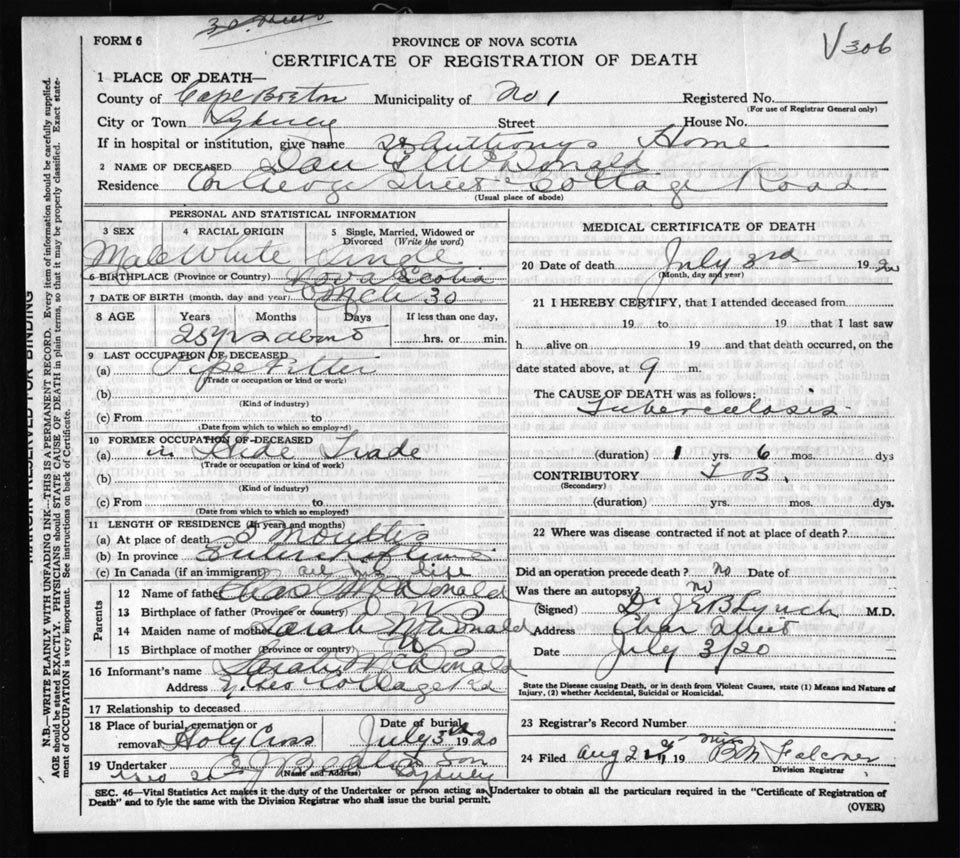 FORM 6
PROVINCE OF NOVA SCOTIA
V306
CERTIFICATE OF REGISTRATION OF DEATH
1 PLACE OF DEATH—
County of Cape Breton Municipality of No 1 Registered No.
(For use of Registrar General only)
City or Town Sydney Street House No.
If in hospital or institution, give name St Anthonys Home
2 NAME OF DECEASED Dan McDonald
Residence George Street Cottage Road
(Usual place of abode)
PERSONAL AND STATISTICAL INFORMATION
3 SEX 4 RACIAL ORIGIN 5 Single, Married, Widowed or Divorced (Write the word)
Male White Single
6 BIRTHPLACE (Province or Country) Nova Scotia
7 DATE OF BIRTH (month, day and year) Mch 30
8 AGE Years Months Days If less than one day,
25 yrs about hrs. or min.
9 LAST OCCUPATION OF DECEASED
(a) Pipe Fitter
(Trade or occupation or kind or work)
(b)
(Kind of industry)
(c) From to
(Date from which to which so employed)
10 FORMER OCCUPATION OF DECEASED
(a) in Trade
(Trade or occupation or kind of work)
(b)
(Kind of industry)
(c) From to
(Date from which to which so employed)
11 LENGTH OF RESIDENCE (In years and months)
(a) At place of death 3 Months
(b) In province
(c) In Canada (if an immigrant) all his life
Parents
12 Name of father McDonald
13 Birthplace of father (Province or country) N S
14 Maiden name of mother Sarah McDonald
15 Birthplace of mother (Province or country) N S
16 Informant's name Sarah McDonald
Address Cottage Rd
17 Relationship to deceased
18 Place of burial, cremation or removal Holy Cross Date of burial July 3th 1920
19 Undertaker son
(Name and Address) Sydney
MEDICAL CERTIFICATE OF DEATH
20 Date of death July 3rd 1920
(Month, day and year)
21 I HEREBY CERTIFY, that I attended deceased from
19 to 19 that I last saw
h alive on 19 and that death occurred, on the
date stated above, at 9 m.
The CAUSE OF DEATH was as follows:
Tuberculosis
(duration) 1 yrs. 6 mos. dys
CONTRIBUTORY T B.
(Secondary)
(duration) yrs. mos. dys.
22 Where was disease contracted if not at place of death?
Did an operation precede death? no Date of
Was there an autopsy? no
(Signed) Dr J E B Lynch M.D.
Address Street
Date July 3/20
State the Disease causing Death, or in death from Violent Causes, state (1) Means and Nature of Injury, (2) whether Accidental, Suicidal or Homicidal.
23 Registrar's Record Number
24 Filed Aug 19 Miss B M Falconer
Division Registrar
SEC. 46—Vital Statistics Act makes it the duty of the Undertaker or person acting as Undertaker to obtain all the particulars required in the "Certificate of Registration of
Death" and to fyle the same with the Division Registrar who shall issue the burial permit.
(OVER)
MARGIN RESERVED FOR BINDING
N.B.—WRITE PLAINLY WITH UNFADING INK—THIS IS A PERMANENT RECORD. Every item of information should be carefully supplied.
AGE should be stated EXACTLY. PHYSICIANS should STATE CAUSE OF DEATH in plain terms, so that it may be properly classified. Exact statement of OCCUPATION is very important. See instructions on back of Certificate.